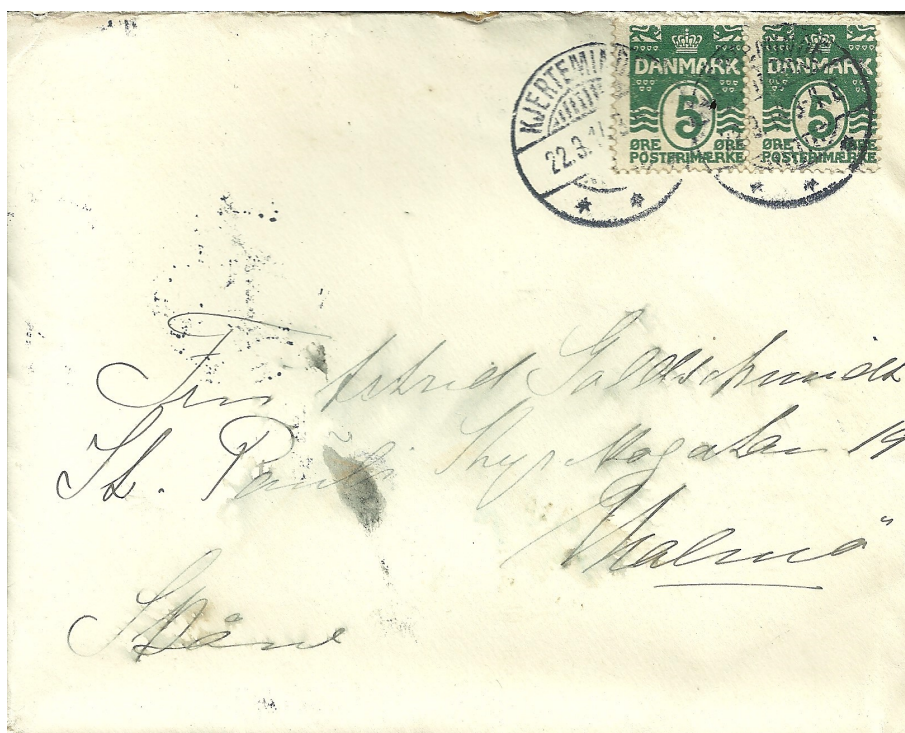 KJERTEMIN
22.3.1
DANMARK
5
ØRE ØRE
POSTFRIMÆRKE
DANMARK
5
ØRE ØRE
POSTFRIMÆRKE
Fru Astrid Goldschmidt
St. Pauli Kyrkogatan 19
Malmö
Skåne